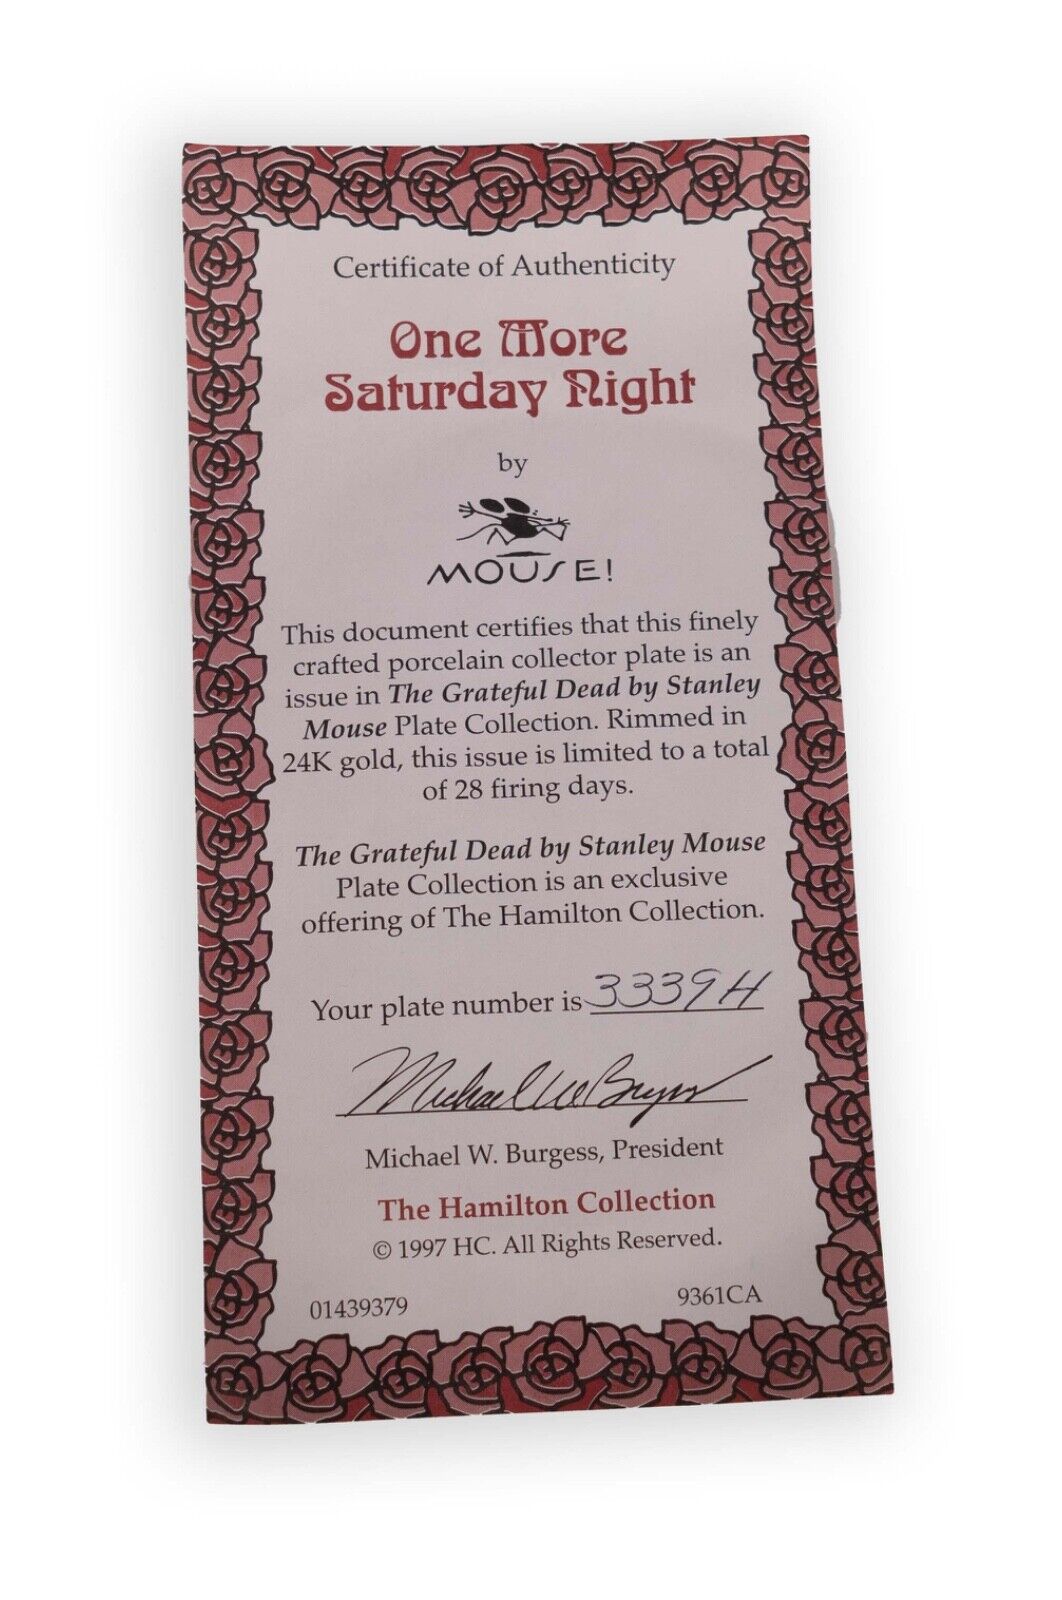 Certificate of Authenticity
One More
Saturday Night
by
MOUSE!
This document certifies that this finely
crafted porcelain collector plate is an
issue in The Grateful Dead by Stanley
Mouse Plate Collection. Rimmed in
24K gold, this issue is limited to a total
of 28 firing days.
The Grateful Dead by Stanley Mouse
Plate Collection is an exclusive
offering of The Hamilton Collection.
Your plate number is 3339H
Michael W Burgess
Michael W. Burgess, President
The Hamilton Collection
© 1997 HC. All Rights Reserved.
01439379 9361CA